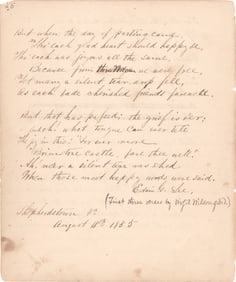 But when the day of parting came,
The each glad heart should happy be,
The each was joyous all the same,
Because from we were free,
Yet many a silent tear drop fell,
As each bade cherished friends farewell.
But that has passed; the grief is o'er;
what tongue can e'er tell
The joy in this: 
castle, fare thee well!"
Ah, a silent tear was shed
When those most happy words were said.
Edwin G. Lee.
(First three verses by
Shepherdstown Va
August 11th 1855